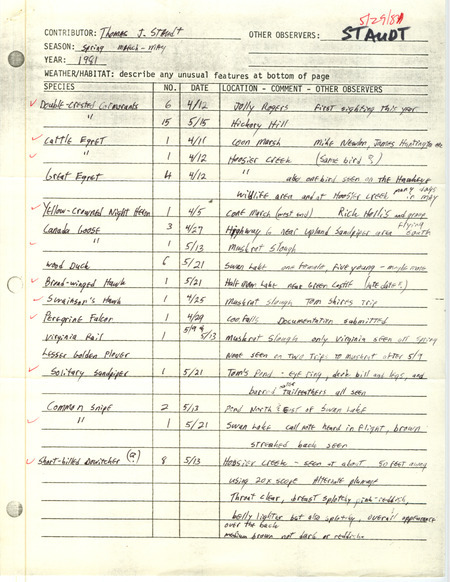 5/29/81
CONTRIBUTOR: Thomas J. Staudt OTHER OBSERVERS: STAUDT
SEASON: Spring March - May
YEAR: 1981
WEATHER/HABITAT: describe any unusual features at bottom of page
SPECIES NO. DATE LOCATION - COMMENT - OTHER OBSERVERS
Double-crested Cormorants 6 4/12 Jolly Rogers First sighting this year
" 15 5/15 Hickory Hill
Cattle Egret 1 4/11 Coon Marsh Mike Newlon, James Huntington
" 1 4/12 Hoosier Creek (Same bird?)
Great Egret 4 4/12 " also one bird seen on the Hawkeye
Wildlife area and at Hoosier Creek many days in May
Yellow-crowned Night Heron 1 4/5 Cone Marsh (west end) Rick Hollis and group
Canada Goose 3 4/27 Highway 6 near Upland Sandpiper area flying
" 1 5/13 Muskrat Slough
Wood Duck 6 5/21 Swan Lake one female, five young
Broad-winged Hawk 1 5/21 Half Moon Lake near Green Castle (late date?)
Swainson's Hawk 1 4/25 Muskrat Slough Tom Shires trip
Peregrine Falcon 1 4/29 Coe Falls Documentation submitted
Virginia Rail 1 5/9 & 5/13 Muskrat Slough only Virginia seen all spring
Lesser Golden Plover None seen on two trips to Muskrat after 5/9
Solitary Sandpiper 1 5/21 Tom's Pond - eye ring, dark bill and legs, and
barred tailfeathers all seen
Common Snipe 2 5/13 Pond North & East of Swan Lake
" 1 5/21 Swan Lake call note heard in flight, brown
streaked back seen
Short-billed Dowitcher (?) 8 5/13 Hoosier Creek - seen at about 50 feet away
using 20x scope Alternate plumage
Throat clear, breast splotchy pink-reddish,
belly lighter but also splotchy, overall appearance
over the back
medium brown not dark or reddish